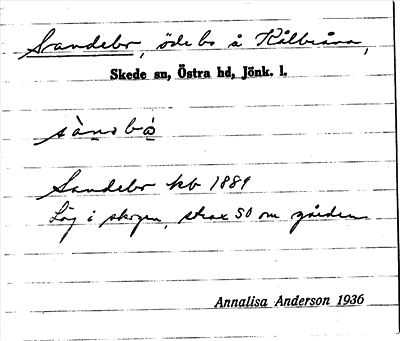 Sandebo, öde bs å Kålbråna,
Skede sn, Östra hd, Jönk. l.
sànsbo
Sandebo kb 1881
Låg i skogen, strax SO om gården
Annalisa Anderson 1936